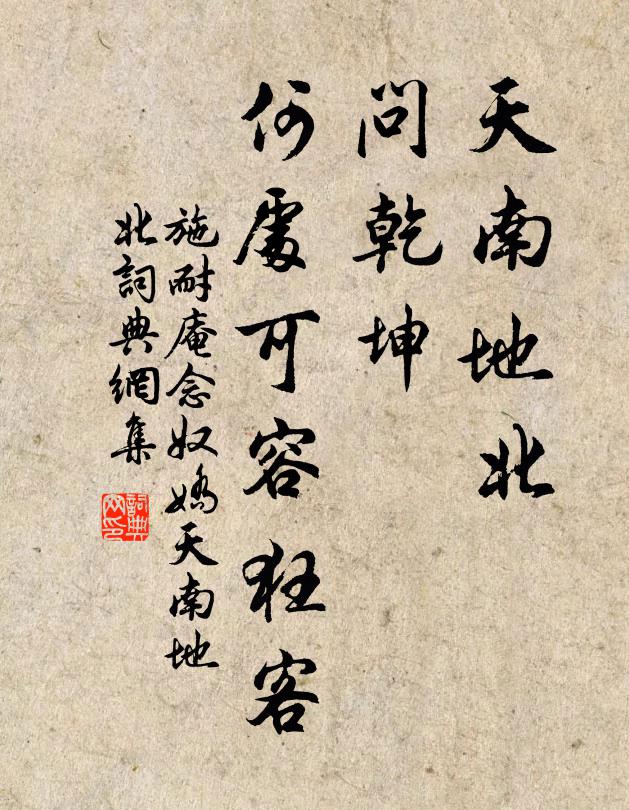 天南地北
問乾坤
何處可容狂客
施耐庵念奴嬌天南地
北詞典網集
詞典网印